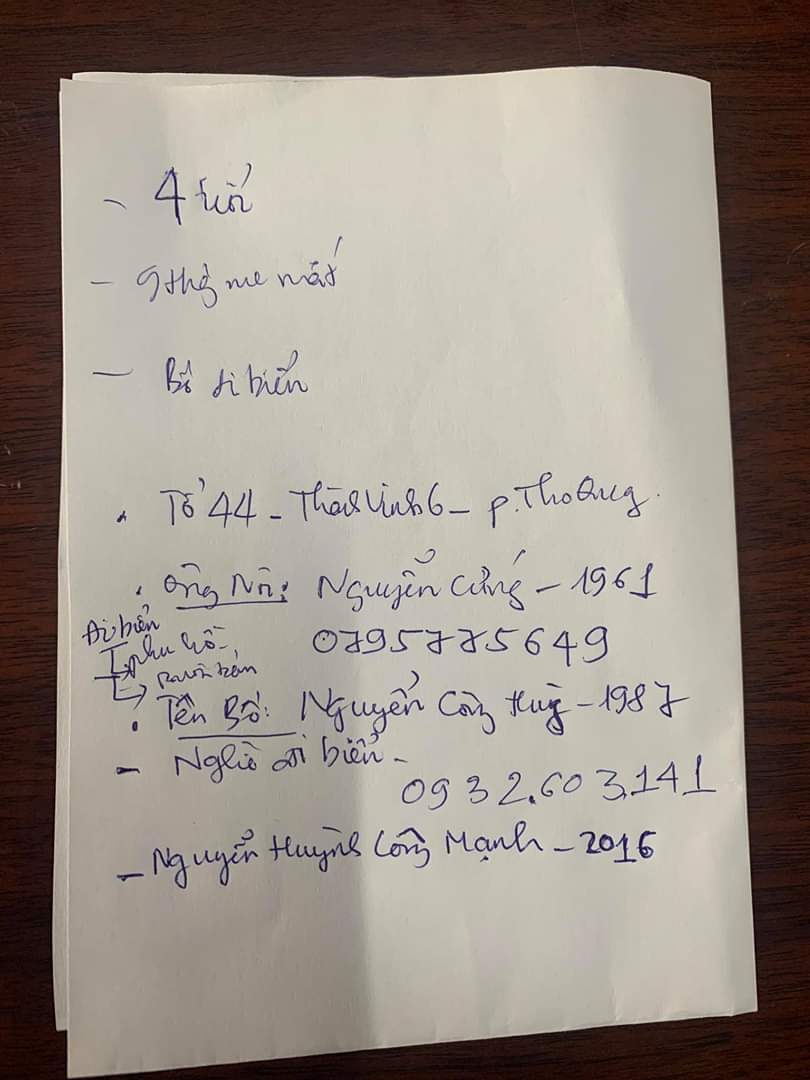 - 4 tuổi
- 9 thg mẹ mất
- Bố đi biển
. Tổ 44 - Thành Vinh 6 - P. Thọ Quang.
. Ông Nội: Nguyễn Cứng - 1961
Đi biển
phụ hồ
buôn bán
0795775649
. Tên Bố: Nguyễn Công Huy - 1987
- Nghề đi biển -
0932.603.141
- Nguyễn Huỳnh Công Mạnh - 2016